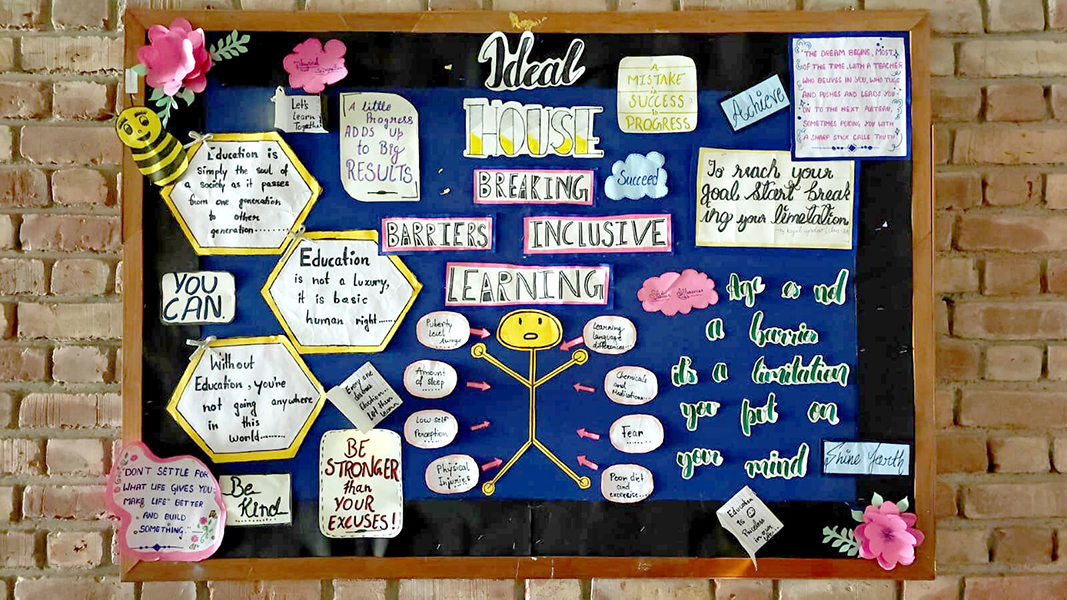 Ideal
HOUSE
BREAKING
BARRIERS INCLUSIVE
LEARNING
Physical
Let's
Learn
Together
A little
Progress
ADDS Up
to Big
RESULTS
A
MISTAKE
is SUCCESS
is PROGRESS
Achieve
THE DREAM BEGINS, MOST
OF THE TIME, WITH A TEACHER
WHO BELIVES IN YOU, WHO TUGS
AND PUSHES AND LEADS YOU
ON TO THE NEXT PLATEAU,
SOMETIMES POKING YOU WITH
A SHARP STICK CALLE TRUTH
Succeed
To reach your
goal start break
ing your limetation
Education is
simply the soul of
a society as it passes
from one generation
to other
generation..........
Education
is not a luxury,
it is basic
human right......
YOU
CAN.
Without
Education, you're
not going anywhere
in this
World..........
Puberty
level
Amount
of sleep
Low self
Perception
Physical
Injuries
Learning
language
differences
Chemicals
and
Medications
Fear
Poor diet
and
excercise
Age is not
a barrier
it's a limitation
you put on
your mind
Every one
Let them
learn
BE
STRONGER
than
YOUR
EXCUSES!
Be
Kind
"DON'T SETTLE FOR
WHAT LIFE GIVES YOU;
MAKE LIFE BETTER
AND BUILD
SOMETHING."
Shine Forth
Education
is
Priceless
in our
life